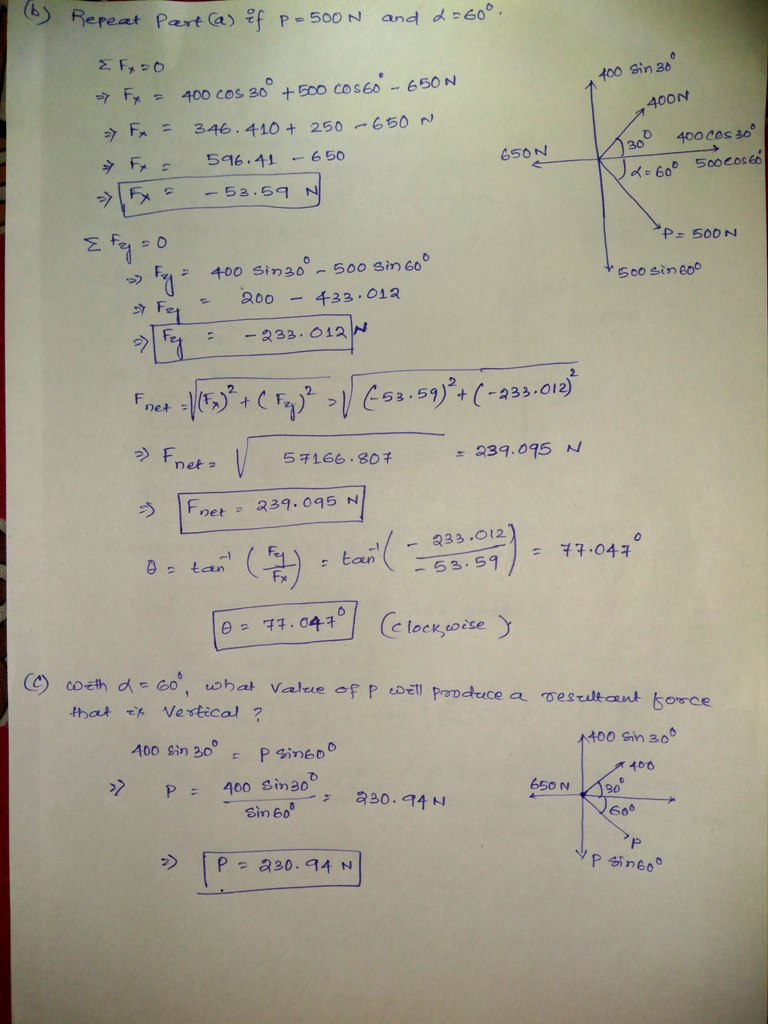 (b) Repeat Part (a) if P = 500 N and α = 60°.
Σ Fx = 0
⇒ Fx = 400 cos 30° + 500 cos 60° - 650 N
⇒ Fx = 346.410 + 250 - 650 N
⇒ Fx = 596.41 - 650
⇒ Fx = - 53.59 N
400 Sin 30°
400 N
650 N
30°
400 cos 30°
500 cos 60°
α = 60°
P = 500 N
500 sin 60°
Σ Fy = 0
⇒ Fy = 400 Sin 30° - 500 Sin 60°
⇒ Fy = 200 - 433.012
⇒ Fy = - 233.012 N
Fnet = √(Fx)² + (Fy)² ⇒ √(-53.59)² + (-233.012)²
⇒ Fnet = √57166.807 = 239.095 N
⇒ Fnet = 239.095 N
θ = tan⁻¹ (Fy/Fx) = tan⁻¹ (- 233.012/- 53.59) = 77.047°
θ = 77.047° (clockwise)
(c) with α = 60°, what value of P will produce a resultant force
that is vertical ?
400 sin 30° = P sin 60°
⇒ P = 400 Sin 30°/Sin 60° = 230.94 N
⇒ P = 230.94 N
400 Sin 30°
400
650 N
30°
60°
P
P Sin 60°